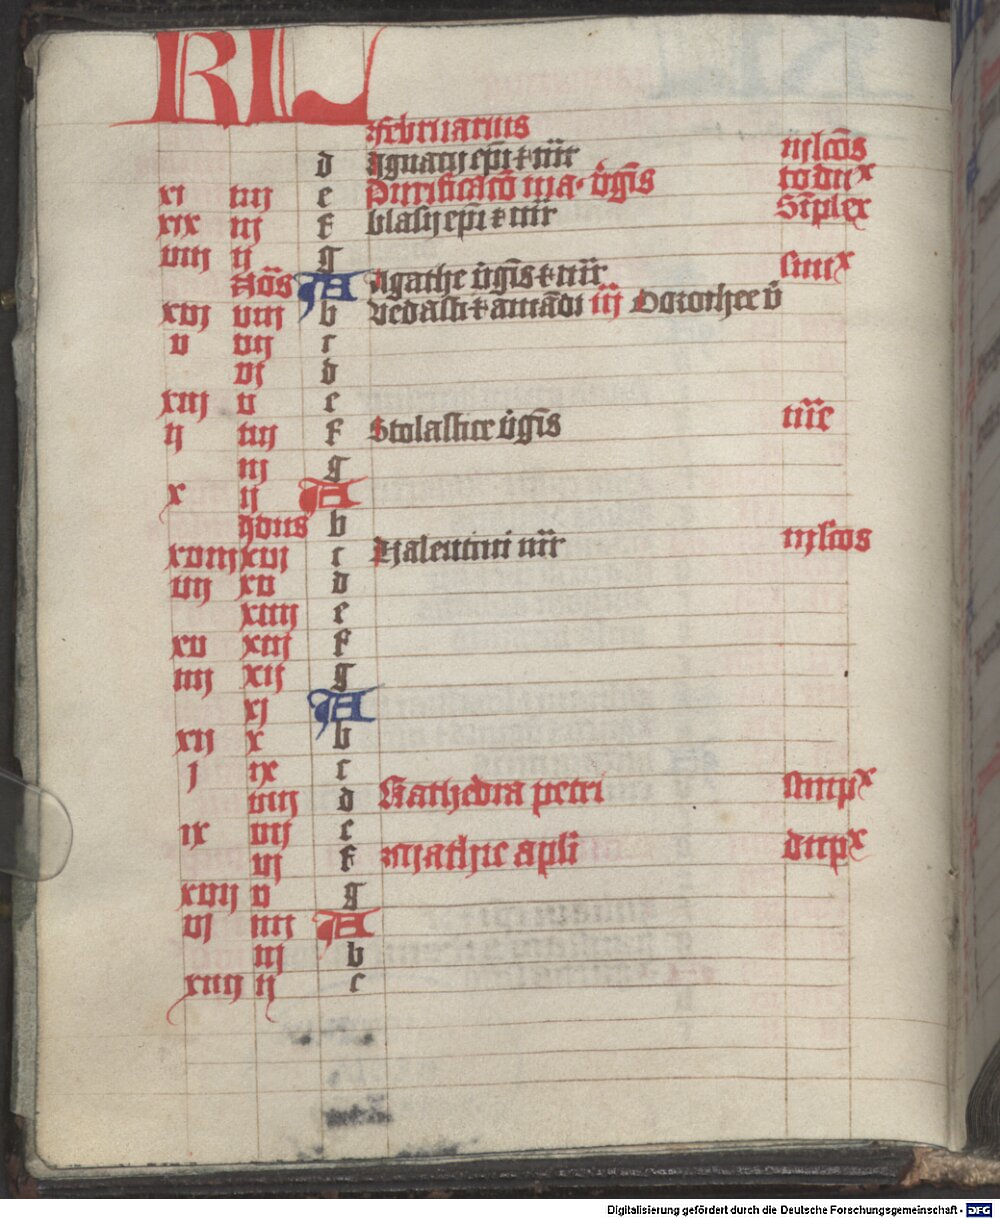 KL
Februarius
d Ignatij epi & mr iij lcōs
xi iiij e Purificacō ma. v̓gīs to dupx
xix iij f blasij epi & mr̄ Simplex
viij ij g
Nōs A Agathe v̓gīs & mr̄ simx
xvj viij b vedasti & amādi iij Dorothee v̓
v vij c
vj d
xiij v e
ij iiij f Scolastice v̓gīs me
iij g
x ij A
ydus b
xviij xvj c Valentini mr̄ iij lcōs
vij xv d
xiiij e
xv xiij f
iiij xij g
xj A
xij x b
j ix c
viij d Kathedra petri simpx
ix vij e
vj f Mathie apli dupx
xvij v g
vj iiij A
iij b
xiiij ij c
Digitalisierung gefördert durch die Deutsche Forschungsgemeinschaft - DFG